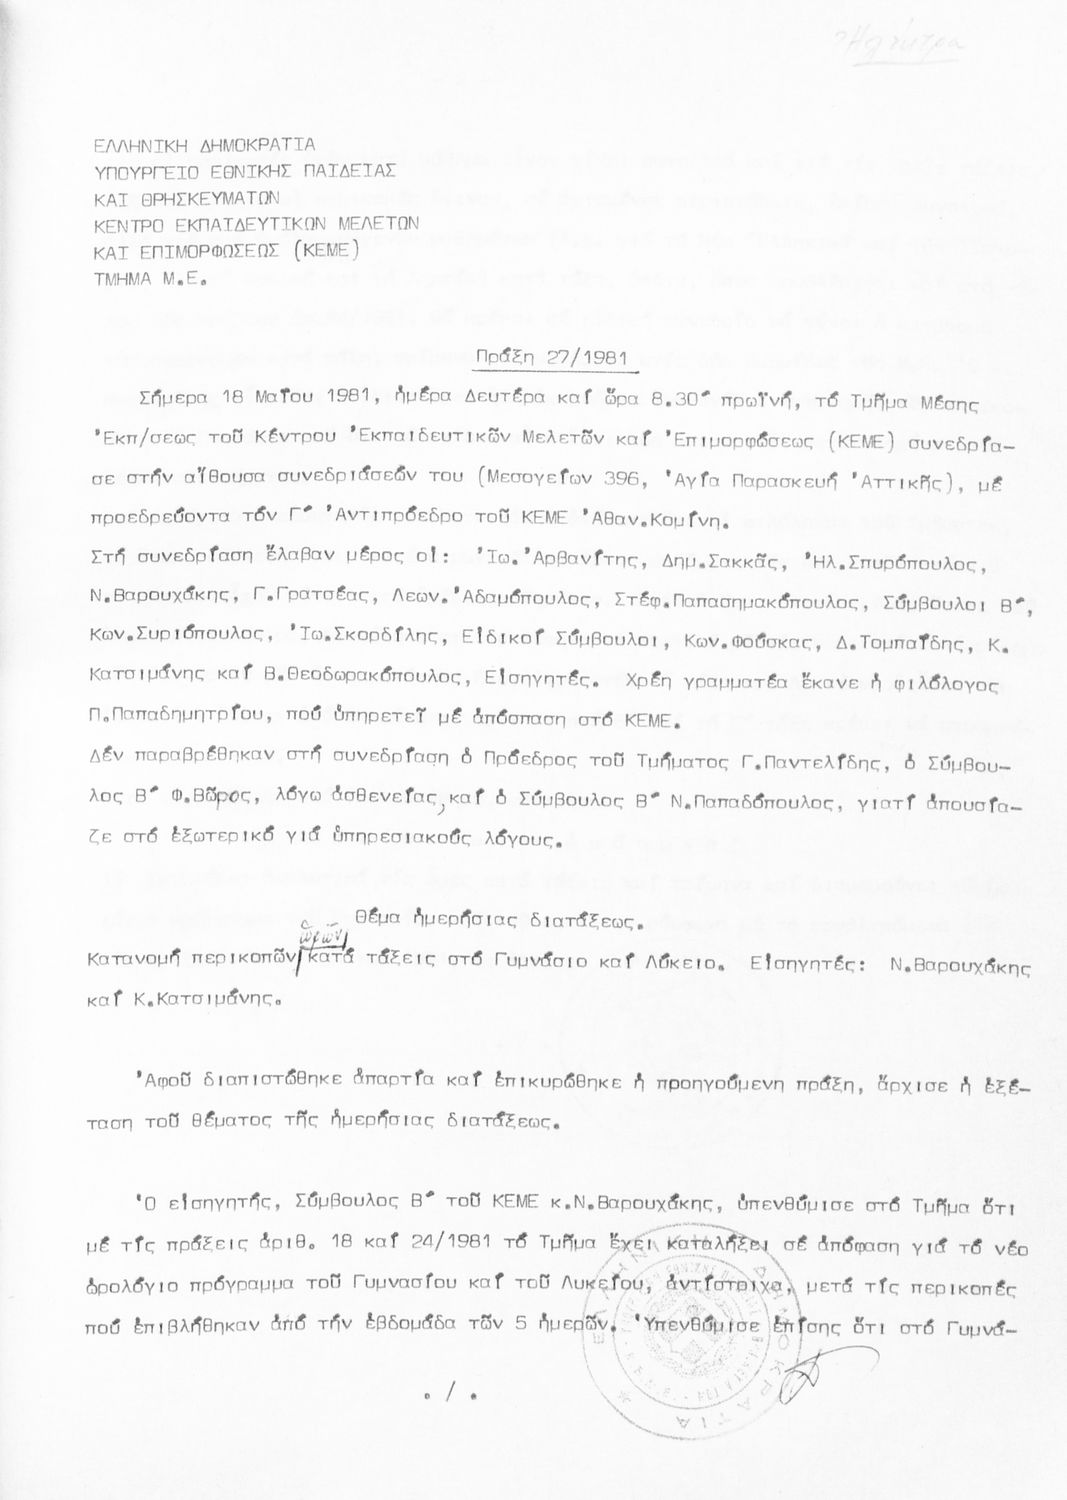 ΕΛΛΗΝΙΚΗ ΔΗΜΟΚΡΑΤΙΑ
ΥΠΟΥΡΓΕΙΟ ΕΘΝΙΚΗΣ ΠΑΙΔΕΙΑΣ
ΚΑΙ ΘΡΗΣΚΕΥΜΑΤΩΝ
ΚΕΝΤΡΟ ΕΚΠΑΙΔΕΥΤΙΚΩΝ ΜΕΛΕΤΩΝ
ΚΑΙ ΕΠΙΜΟΡΦΩΣΕΩΣ (ΚΕΜΕ)
ΤΜΗΜΑ Μ.Ε.
Πράξη 27/1981
Σήμερα 18 Μαΐου 1981, ἡμέρα Δευτέρα καί ὥρα 8.30΄ πρωϊνή, τό Τμῆμα Μέσης
Ἐκπ/σεως τοῦ Κέντρου Ἐκπαιδευτικῶν Μελετῶν καί Ἐπιμορφώσεως (ΚΕΜΕ) συνεδρία-
σε στήν αἴθουσα συνεδριάσεών του (Μεσογείων 396, Ἁγία Παρασκευή Ἀττικῆς), μέ
προεδρεύοντα τόν Γ΄ Ἀντιπρόεδρο τοῦ ΚΕΜΕ Ἀθαν.Κομίνη.
Στή συνεδρίαση ἔλαβαν μέρος οἱ: Ἰω. Ἀρβανίτης, Δημ.Σακκᾶς, Ἠλ.Σπυρόπουλος,
Ν.Βαρουχάκης, Γ.Γρατσέας, Λεων.Ἀδαμόπουλος, Στέφ.Παπασημακόπουλος, Σύμβουλοι Β΄,
Κων.Συριόπουλος, Ἰω.Σκορδίλης, Εἰδικοί Σύμβουλοι, Κων.Φούσκας, Δ.Τομπαΐδης, Κ.
Κατσιμάνης καί Β.Θεοδωρακόπουλος, Εἰσηγητές. Χρέη γραμματέα ἔκανε ἡ φιλόλογος
Π.Παπαδημητρίου, πού ὑπηρετεῖ μέ ἀπόσπαση στό ΚΕΜΕ.
Δέν παραβρέθηκαν στή συνεδρίαση ὁ Πρόεδρος τοῦ Τμήματος Γ.Παντελίδης, ὁ Σύμβου-
λος Β΄ Φ.Βῶρος, λόγω ἀσθενείας, καί ὁ Σύμβουλος Β΄ Ν.Παπαδόπουλος, γιατί ἀπουσία-
ζε στό ἐξωτερικό γιά ὑπηρεσιακούς λόγους.
Θέμα ἡμερήσιας διατάξεως.
ὡρῶν
Κατανομή περικοπῶν κατά τάξεις στό Γυμνάσιο καί Λύκειο. Εἰσηγητές: Ν.Βαρουχάκης
καί Κ.Κατσιμάνης.
Ἀφοῦ διαπιστώθηκε ἀπαρτία καί ἐπικυρώθηκε ἡ προηγούμενη πράξη, ἄρχισε ἡ ἐξέ-
ταση τοῦ θέματος τῆς ἡμερήσιας διατάξεως.
Ὁ εἰσηγητής, Σύμβουλος Β΄ τοῦ ΚΕΜΕ κ.Ν.Βαρουχάκης, ὑπενθύμισε στό Τμῆμα ὅτι
μέ τίς πράξεις ἀριθ. 18 καί 24/1981 τό Τμῆμα ἔχει καταλήξει σέ ἀπόφαση γιά τό νέο
ὡρολόγιο πρόγραμμα τοῦ Γυμνασίου καί τοῦ Λυκείου, ἀντίστοιχα, μετά τίς περικοπές
πού ἐπιβλήθηκαν ἀπό τήν ἑβδομάδα τῶν 5 ἡμερῶν. Ὑπενθύμισε ἐπίσης ὅτι στό Γυμνά-
. / .
ΕΛΛΗΝΙΚΗ ΔΗΜΟΚΡΑΤΙΑ